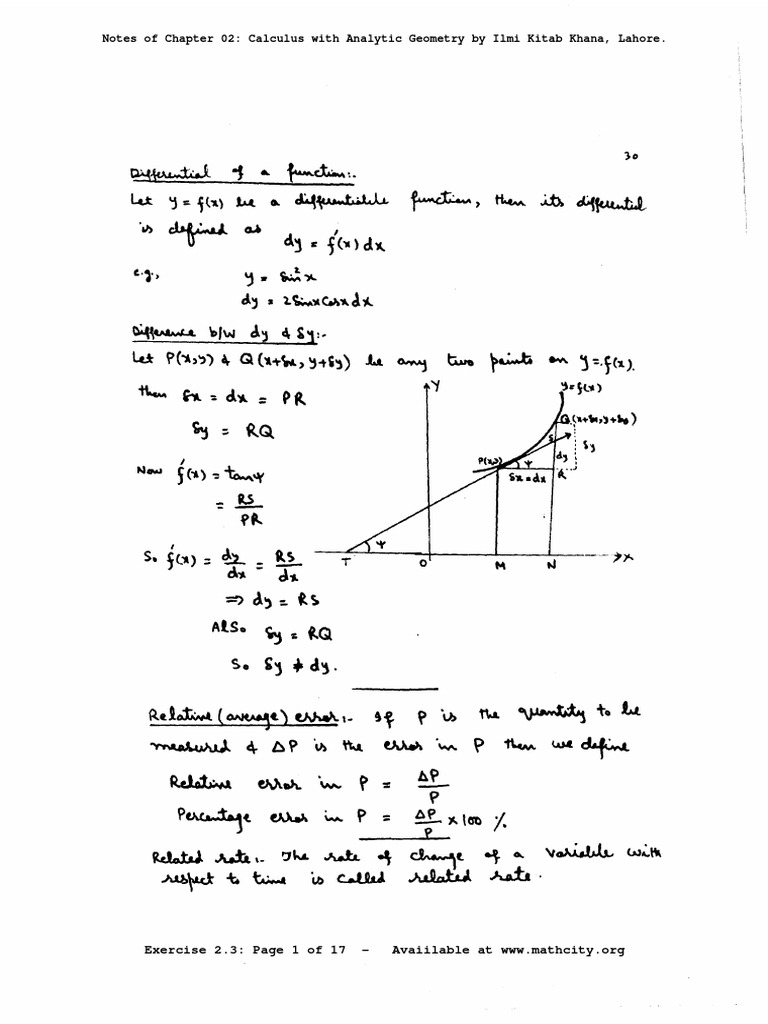 Notes of Chapter 02: Calculus with Analytic Geometry by Ilmi Kitab Khana, Lahore.
30
Differential of a function:-
Let y = f(x) be a differentiable function, then its differential
is defined as
dy = f′(x) dx
e.g., y = Sin²x
dy = 2Sinx Cosx dx
Difference b/w dy & δy:-
Let P(x,y) & Q(x+δx, y+δy) be any two points on y = f(x).
then δx = dx = PR
δy = RQ
Now f′(x) = tanψ
= RS/PR
So f′(x) = dy/dx = RS/dx
⇒ dy = RS
Also δy = RQ
So δy ≠ dy.
Y
y = f(x)
Q(x+δx, y+δy)
S
δy
P(x,y)
ψ
dy
δx = dx
R
ψ
T O M N X
Relative (average) error:- If P is the quantity to be
measured & ΔP is the error in P then we define
Relative error in P = ΔP/P
Percentage error in P = ΔP/P × 100 %
Related rate:- The rate of change of a variable with
respect to time is called related rate.
Exercise 2.3: Page 1 of 17 – Avaiilable at www.mathcity.org